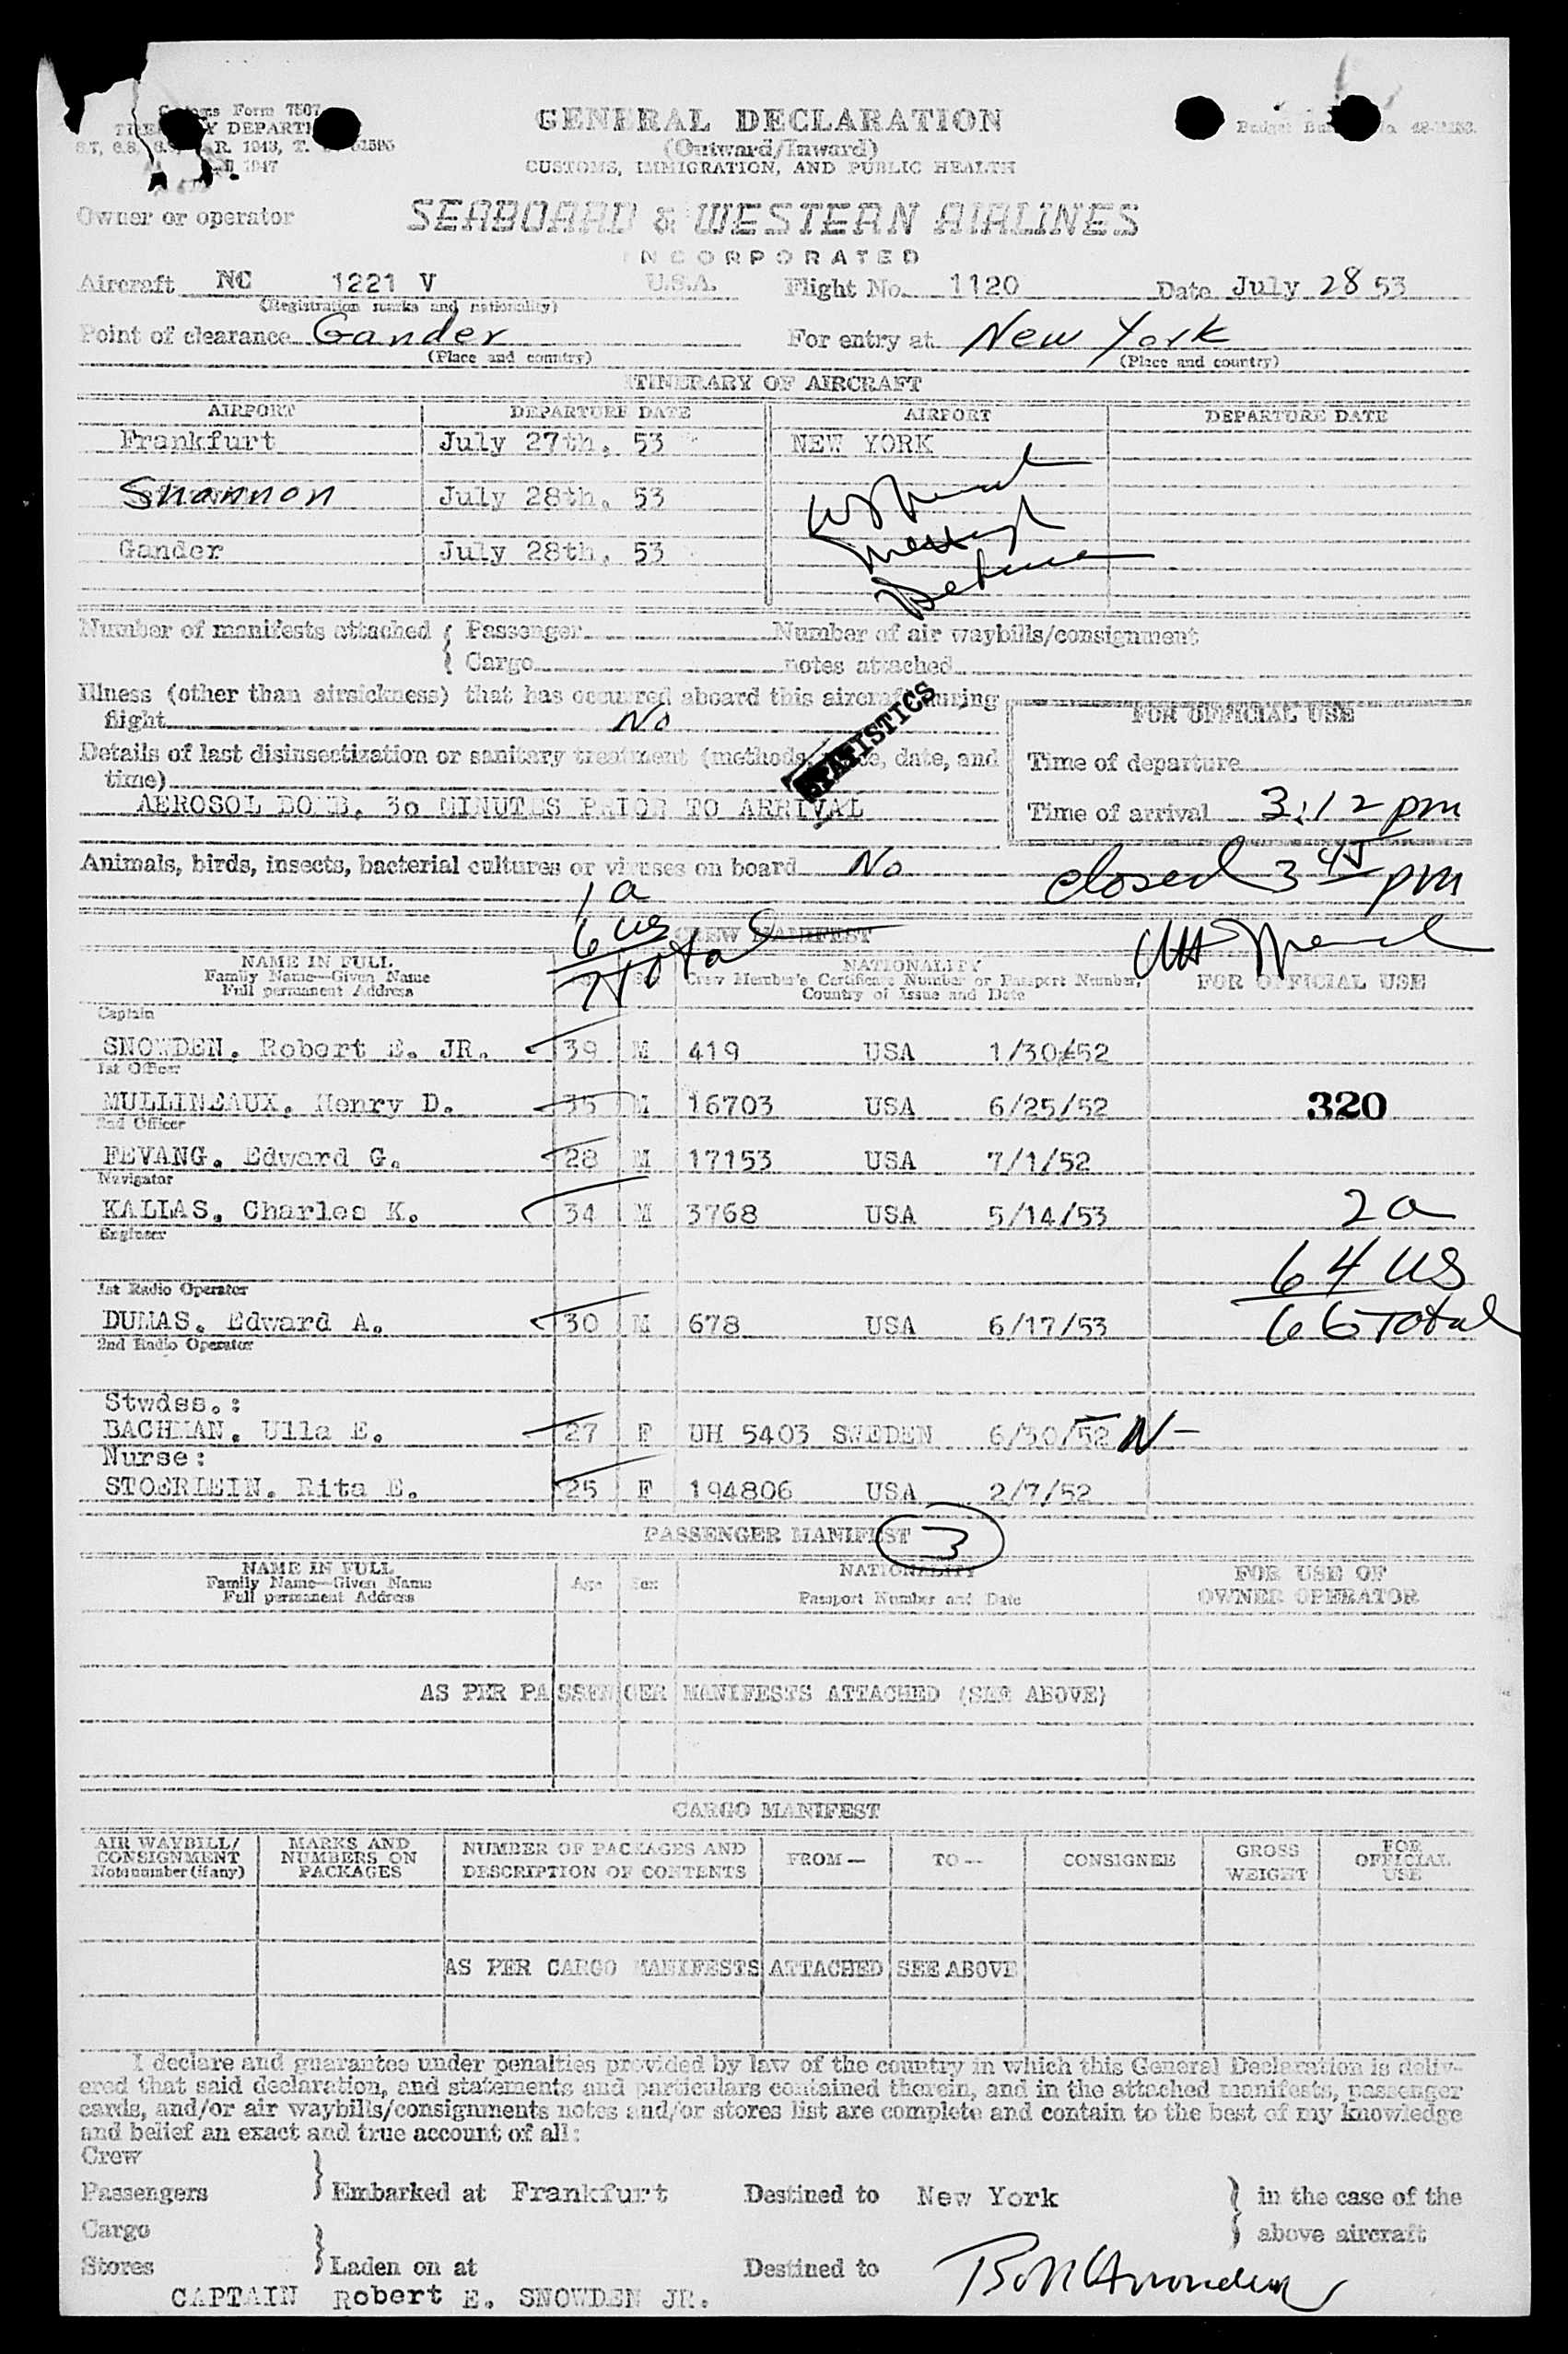 Customs Form 7507
GENERAL DECLARATION
(Outward/Inward)
CUSTOMS, IMMIGRATION, AND PUBLIC HEALTH
Owner or operator SEABOARD & WESTERN AIRLINES
INCORPORATED
Aircraft NC 1221 V U.S.A. Flight No. 1120 Date July 28 53
(Registration marks and nationality)
Point of clearance Gander For entry at New York
(Place and country) (Place and country)
ITINERARY OF AIRCRAFT
AIRPORT DEPARTURE DATE AIRPORT DEPARTURE DATE
Frankfurt July 27th, 53 NEW YORK
Shannon July 28th, 53
Gander July 28th, 53
Number of manifests attached { Passenger Number of air waybills/consignment
Cargo notes attached
Illness (other than airsickness) that has occurred aboard this aircraft during
flight No
FOR OFFICIAL USE
STATISTICS
Details of last disinsectization or sanitary treatment (methods, place, date, and
time)
Time of departure
AEROSOL BOMB, 30 MINUTES PRIOR TO ARRIVAL
Time of arrival 3:12 pm
Animals, birds, insects, bacterial cultures or viruses on board No
closed 3 45 pm
1 a
6 us
7 Total
CREW MANIFEST
NAME IN FULL
Family Name—Given Name
Full permanent Address
Sex
NATIONALITY
Crew Member's Certificate Number or Passport Number,
Country of Issue and Date
FOR OFFICIAL USE
Captain
SNOWDEN, Robert E. JR. 39 M 419 USA 1/30/52
1st Officer
MULLINEAUX, Henry D. 35 M 16703 USA 6/25/52 320
2nd Officer
FEVANG, Edward G. 28 M 17153 USA 7/1/52
Navigator
KALLAS, Charles K. 34 M 3768 USA 5/14/53 2 a
Engineer
64 us
1st Radio Operator
DUMAS, Edward A. 30 M 678 USA 6/17/53 66 Total
2nd Radio Operator
Stwdss.:
BACHMAN, Ulla E. 27 F UH 5403 SWEDEN 6/30/52 N-
Nurse:
STOERLEIN, Rita E. 25 F 194806 USA 2/7/52
PASSENGER MANIFEST 3
NAME IN FULL
Family Name—Given Name
Full permanent Address
Age Sex
NATIONALITY
Passport Number and Date
FOR USE OF
OWNER OPERATOR
AS PER PASSENGER MANIFESTS ATTACHED (SEE ABOVE)
CARGO MANIFEST
AIR WAYBILL/
CONSIGNMENT
Note number (if any)
MARKS AND
NUMBERS ON
PACKAGES
NUMBER OF PACKAGES AND
DESCRIPTION OF CONTENTS
FROM— TO— CONSIGNEE
GROSS
WEIGHT
FOR
OFFICIAL
USE
AS PER CARGO MANIFESTS ATTACHED SEE ABOVE
I declare and guarantee under penalties provided by law of the country in which this General Declaration is deliv-
ered that said declaration, and statements and particulars contained therein, and in the attached manifests, passenger
cards, and/or air waybills/consignments notes and/or stores list are complete and contain to the best of my knowledge
and belief an exact and true account of all:
Crew
Passengers } Embarked at Frankfurt Destined to New York } in the case of the
Cargo } above aircraft
Stores } Laden on at Destined to
CAPTAIN Robert E. SNOWDEN JR.